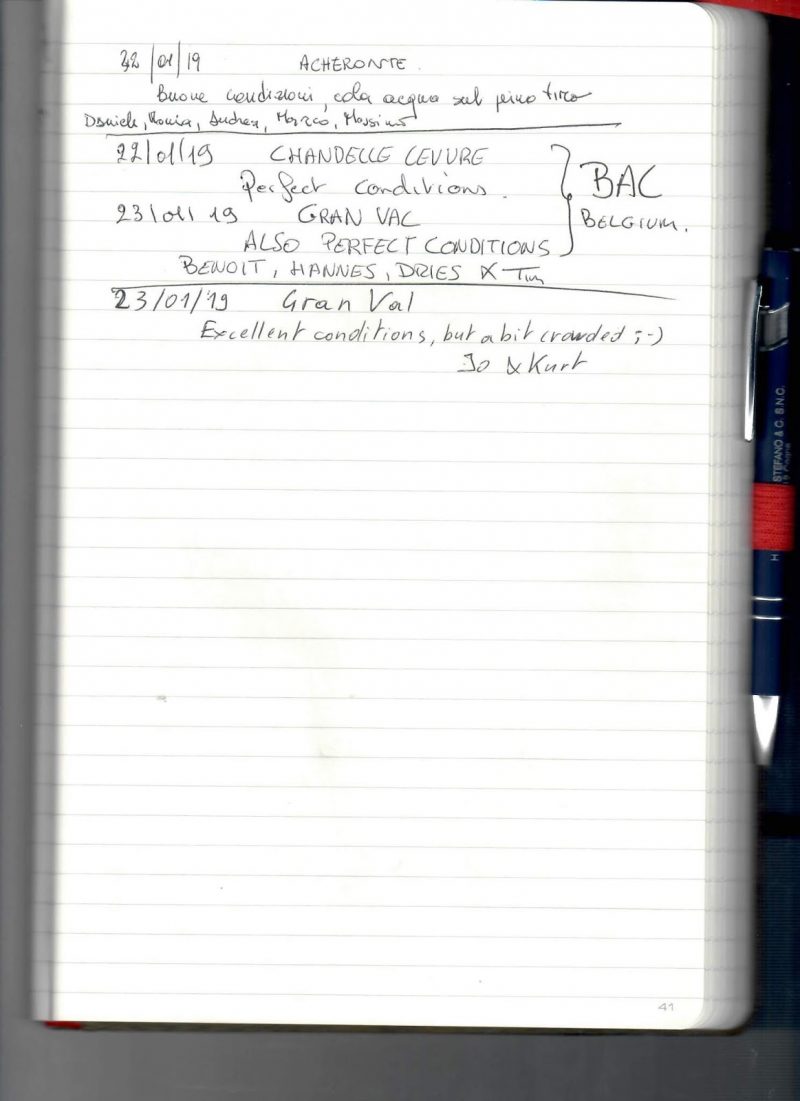 22/01/19 ACHERONTE.
Buone condizioni, cola acqua sul primo tiro
Daniele, Andrea, Marco, Massimo
22/01/19 CHANDELLE LEVURE
Perfect conditions.
23/01/19 GRAN VAC
ALSO PERFECT CONDITIONS
BENOIT, HANNES, DRIES & Tim
BAC
BELGIUM.
23/01/19 Gran Val
Excellent conditions, but a bit crowded ;-)
Jo & Kurt
41
STEFANO & C. S.N.C.